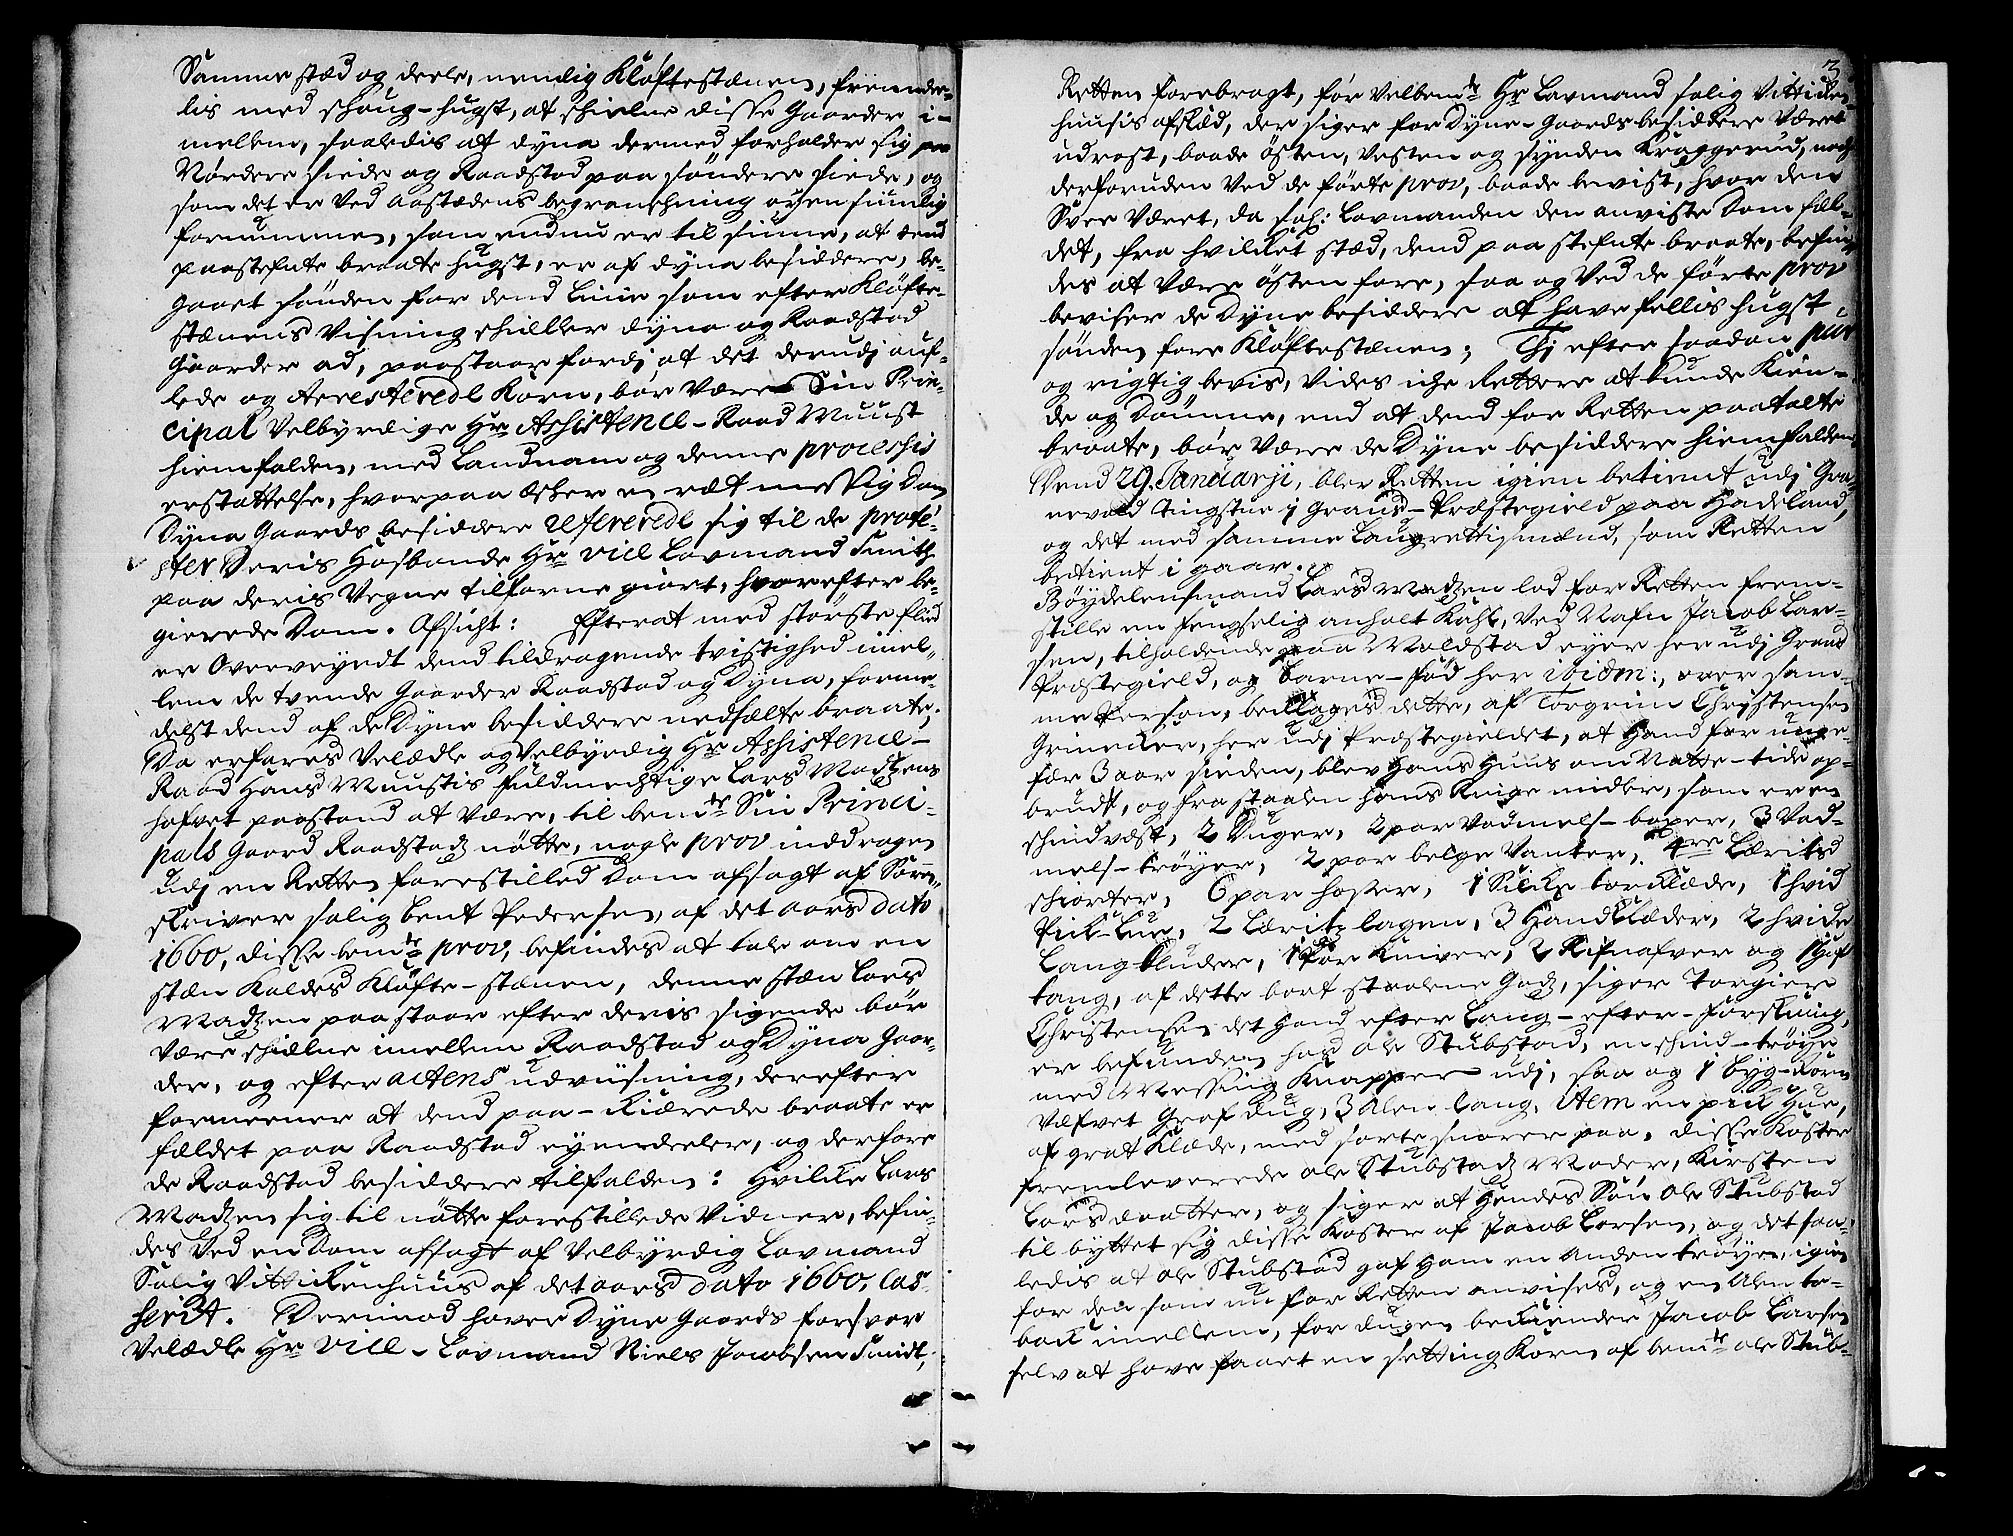 Samme stæd og deele, nemlig Kløftestænen, fremdee-
lis med skoug-hugst, at skielne disse Gaarder i-
mellem, saaledis at Dyna dermed forholder sig paa
Nørdere siide og Raadstad paa søndere siide, og
som det er ved aastædens begranskning øyensiunlig
fornummen, som endnu er til siune, at dend
paastefnte braate hugst, er af Dyna besiddere, be-
gaaet sønden for dend Linie som efter Kløfte-
stænens Visning skiller Dyna og Raadstad
Gaarder ad, paastaar fordj at det derudj auf-
lede og Arresterede Korn, bør være Sin Prin-
cipal Velbyrdige Hr Assistence-Raad Muust
hiemfalden, med Landnam og denne processis
erstattelse, hvorpaa æsker en rætmessig Dom
Dyna Gaards besiddere refererede sig til de prote-
ster Deris Hosbonde Hr Vice Lavmand Smith
paa deris Vegne tilforne giort, hvorefter be-
gierede Dom. Afsicht: Efterat med største flid
er Overveyedt dend tildragende tvistighed imel-
lem de tvende Gaarder Raadstad og Dyna, forme-
delst dend af de Dyne besiddere nedfælte braate;
Da erfares Velædle og Velbyrdig Hr Assistence-
Raad Hans Muustis fuldmechtige Lars Madzens
hafvet paastand at være, til bemte Sin Princi-
pals Gaard Raadstadz nøtte, nogle prov inddragen
udj en Retten forestilled Dom afsagt af Soren-
skriver salig Bent Pedersen, af det aars dato
1660, disse bemte prov, befindes at tale om en
stæn Kaldes Kløfte-stænen, denne stæn Lars
Madzen paastaar efter deris sigende bør
være skielne imellem Raadstad og Dyna Gaar-
der, og efter actens udviisning, derefter
formeener at dend paa-Kiærede braate er
fældet paa Raadstad eyendeeler, og derfore
de Raadstad besiddere tilfalden: Hvilke Lars
Madzen sig til nøtte forestillede Vidner, befin-
des ved en Dom afsagt af Velbyrdig Lavmand
Salig Vittikenhuus af det aars dato 1660, Cas-
serit. Derimod haver Dyne Gaards forsvar
Velædle Hr Vice-Lavmand Niels Jacobsen Smidt,
3
Retten forebragt, før Velbemte Hr Lavmand salig Vittiken-
huusis afskæd, der siger for Dyne-Gaards besiddere været
udrast, baade østen, vesten og synden Kraggerud, noch
derforuden ved de førte prov, baade bevist, hvor den
Svee været, da Sal: Lavmanden den anviste Dom fæl-
det, fra hvilket stæd, dend paa stefnte braate, befin-
des at være østen fore, saa og ved de førte prov
beviser de Dyne besiddere at have fellis hugst
sønden fore Kløftestænen; Thj efter saadan
og rigtig bevis, vides iche Rettere at kunde Kien-
de og Dømme, end at dend for Retten paatalte
braate, bør være de Dyne besiddere hiemfalden
Dend 29. Januarji, blev Retten igien betient udj Gra-
nevold tingstue i Grans-Præstegield paa Hadeland,
og det med samme Laugrettismænd, som Retten
betient i gaar.
Bøydelensmand Lars Madzen lod for Retten frem-
stille en fengselig anholt Kahl, ved Nafn Jacob Lar-
sen, tilholdende paa Molstad eyer her udj Grans
Præstegield, og barne-fød her ibidm:, over sam-
me Person, beklages dette, af Torgrim Christensen
Grinecker, her udj Præstegieldet, at Hand for unge-
fær 3 aar siiden, blev Hans Huus om Natte-tide op-
brudt, og frastaalen Hans Ringe midler, som er en
skindvæst, 2 Duger, 2 par vadmels-boxer, 3 Vad-
mels-trøyer, 2 par belge Vanter, 4re Læritz
skiorter, 6 par Hoser, 1 Silke torklæde, 1 hvid
Pick-Lue, 2 Læritz lagen, 3 Handklæder, 2 hvide
Langkluder, 1 par Kniver, 2 Rifnafver og 1
tang, af dette bort staalene Godz, siger Torgier
Christensen det Hand efter Lang-efter-forskning,
er befunden hos Ole Stubstad, en skind-trøye
med Messing Knapper udj, saa og 1 byg-Korns
Væfvet Graf Dug, 3 Alen lang, Item en pick Hue,
af grat Klæde, med sorte snorer paa, disse Koster
fremleverede Ole Stubstadz Moder, Kirsten
Larsdaatter, og siger at Hendes Søn Ole Stubstad
til byttet sig disse Koster af Jacob Larsen, og det saa-
ledis at Ole Stubstad gaf Ham en anden trøye, igien
for den som nu for Retten anvises, og en Alen to-
back imellem, for dugen bekiender Jacob Larsen
selv at have faaet en setting Korn af bemte Ole Stub-